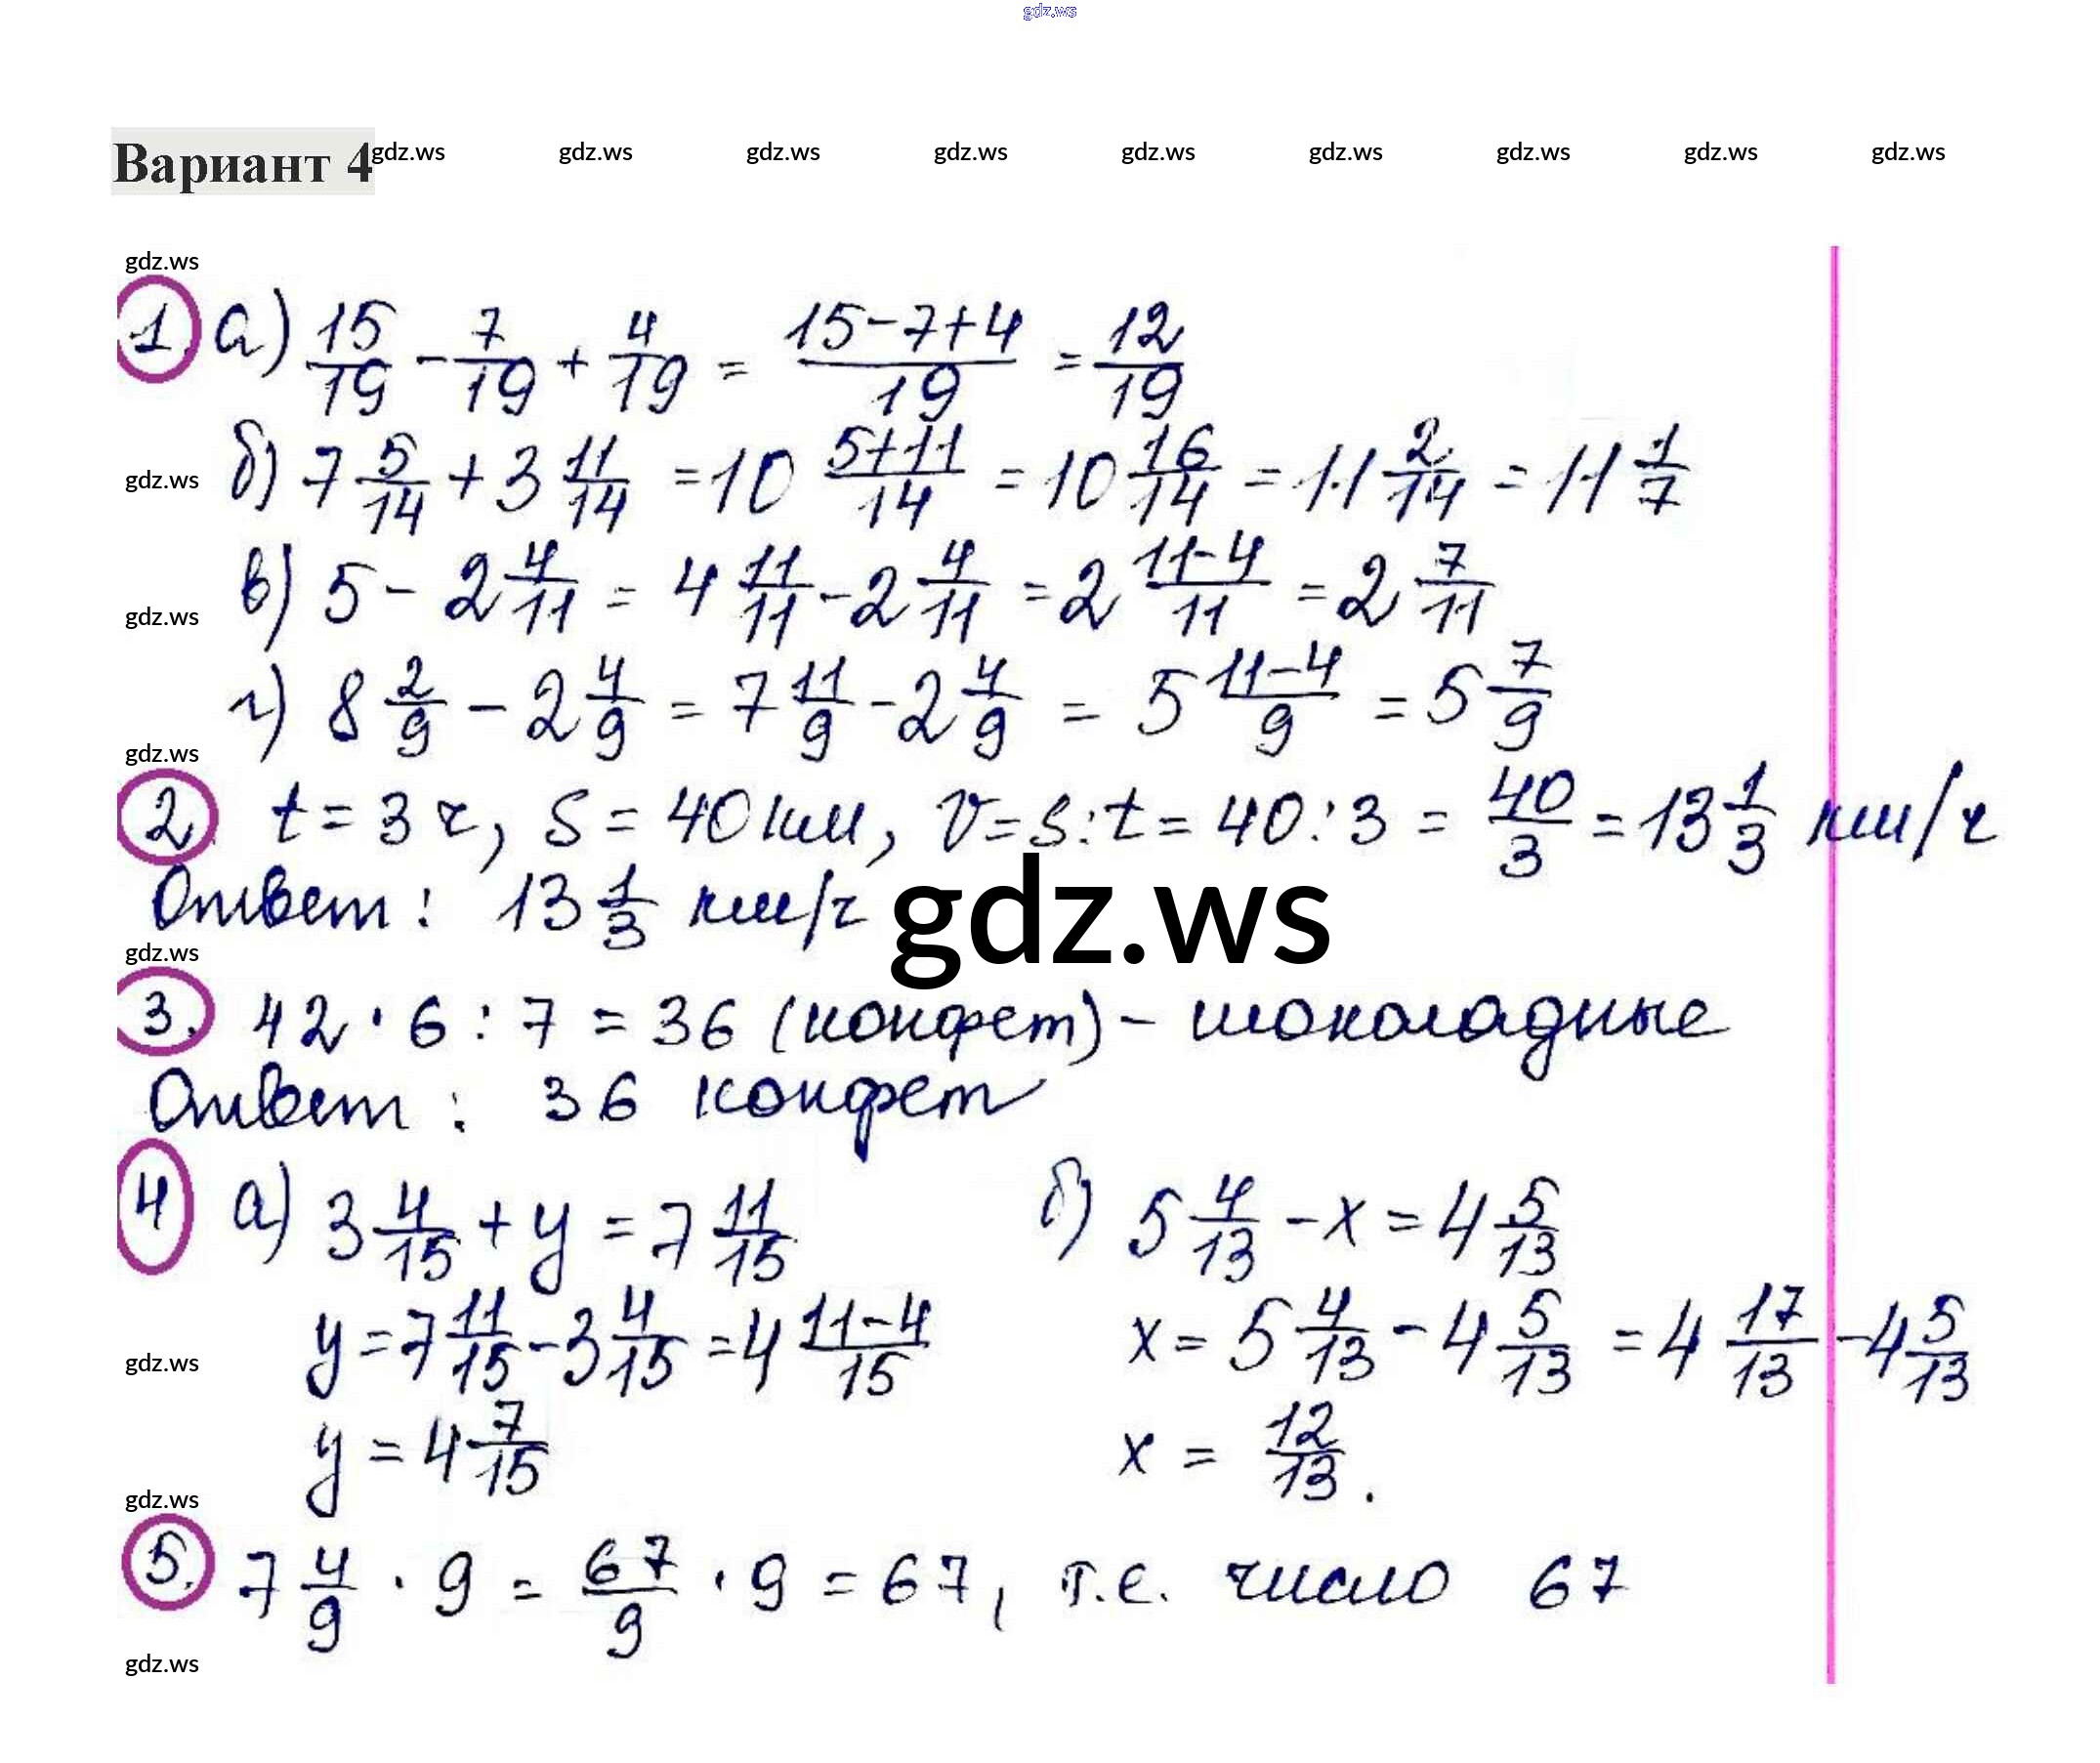 gdz.ws
Вариант 4
gdz.ws gdz.ws gdz.ws gdz.ws gdz.ws gdz.ws gdz.ws gdz.ws gdz.ws
gdz.ws
1. а) 15/19 - 7/19 + 4/19 = (15-7+4)/19 = 12/19
gdz.ws б) 7 5/14 + 3 11/14 = 10 (5+11)/14 = 10 16/14 = 11 2/14 = 11 1/7
gdz.ws в) 5 - 2 4/11 = 4 11/11 - 2 4/11 = 2 (11-4)/11 = 2 7/11
г) 8 2/9 - 2 4/9 = 7 11/9 - 2 4/9 = 5 (11-4)/9 = 5 7/9
gdz.ws
2. t = 3 ч, S = 40 км, v = s : t = 40 : 3 = 40/3 = 13 1/3 км/ч
Ответ: 13 1/3 км/ч
gdz.ws
gdz.ws
3. 42 · 6 : 7 = 36 (конфет) - шоколадные
Ответ: 36 конфет
4 а) 3 4/15 + y = 7 11/15 б) 5 4/13 - x = 4 5/13
gdz.ws y = 7 11/15 - 3 4/15 = 4 (11-4)/15 x = 5 4/13 - 4 5/13 = 4 17/13 - 4 5/13
y = 4 7/15 x = 12/13.
gdz.ws
5. 7 4/9 · 9 = 67/9 · 9 = 67, т.е. число 67
gdz.ws